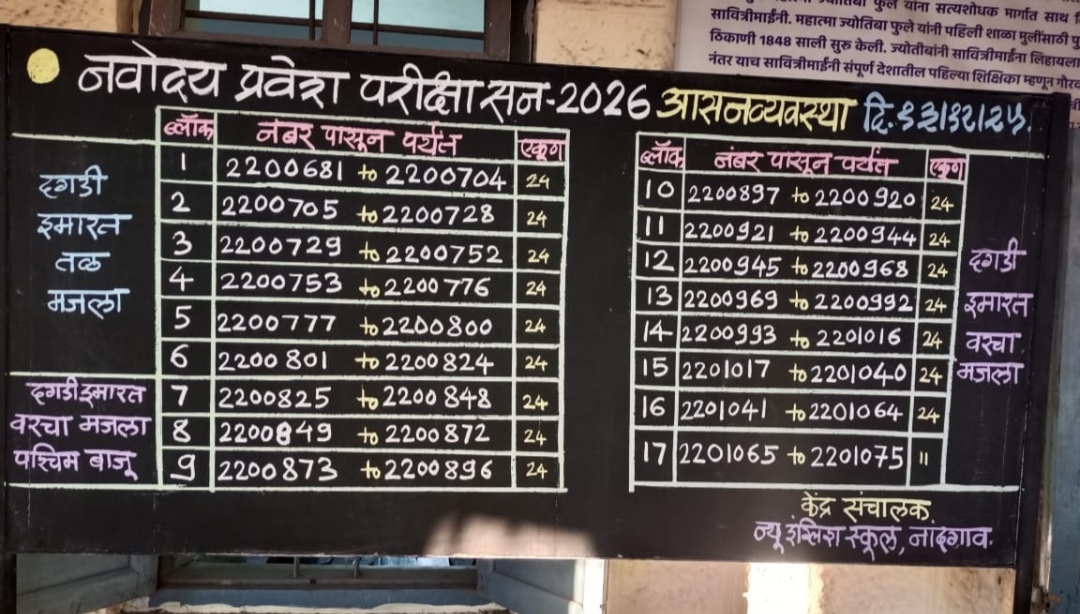 सावित्रीमाईंनी. महात्मा ज्योतिबा फुले यांनी पहिली शाळा मुलींसाठी
ठिकाणी 1848 साली सुरू केली. ज्योतीबांनी सावित्रीमाईंना
नंतर याच सावित्रीमाईंनी संपूर्ण देशातील पहिल्या शिक्षिका म्हणून
नवोदय प्रवेश परीक्षा सन-2026 आसनव्यवस्था दि. १३।१२।२५.
ब्लॉक नंबर पासून पर्यंत एकूण
दगडी इमारत तळ मजला
1 2200681 to 2200704 24
2 2200705 to 2200728 24
3 2200729 to 2200752 24
4 2200753 to 2200776 24
5 2200777 to 2200800 24
6 2200801 to 2200824 24
दगडी इमारत वरचा मजला पश्चिम बाजू
7 2200825 to 2200848 24
8 2200849 to 2200872 24
9 2200873 to 2200896 24
ब्लॉक नंबर पासून पर्यंत एकूण
10 2200897 to 2200920 24
11 2200921 to 2200944 24
12 2200945 to 2200968 24
13 2200969 to 2200992 24
14 2200993 to 2201016 24
15 2201017 to 2201040 24
16 2201041 to 2201064 24
17 2201065 to 2201075 11
दगडी
इमारत
वरचा
मजला
केंद्र संचालक
न्यू इंग्लिश स्कूल, नांदगाव.